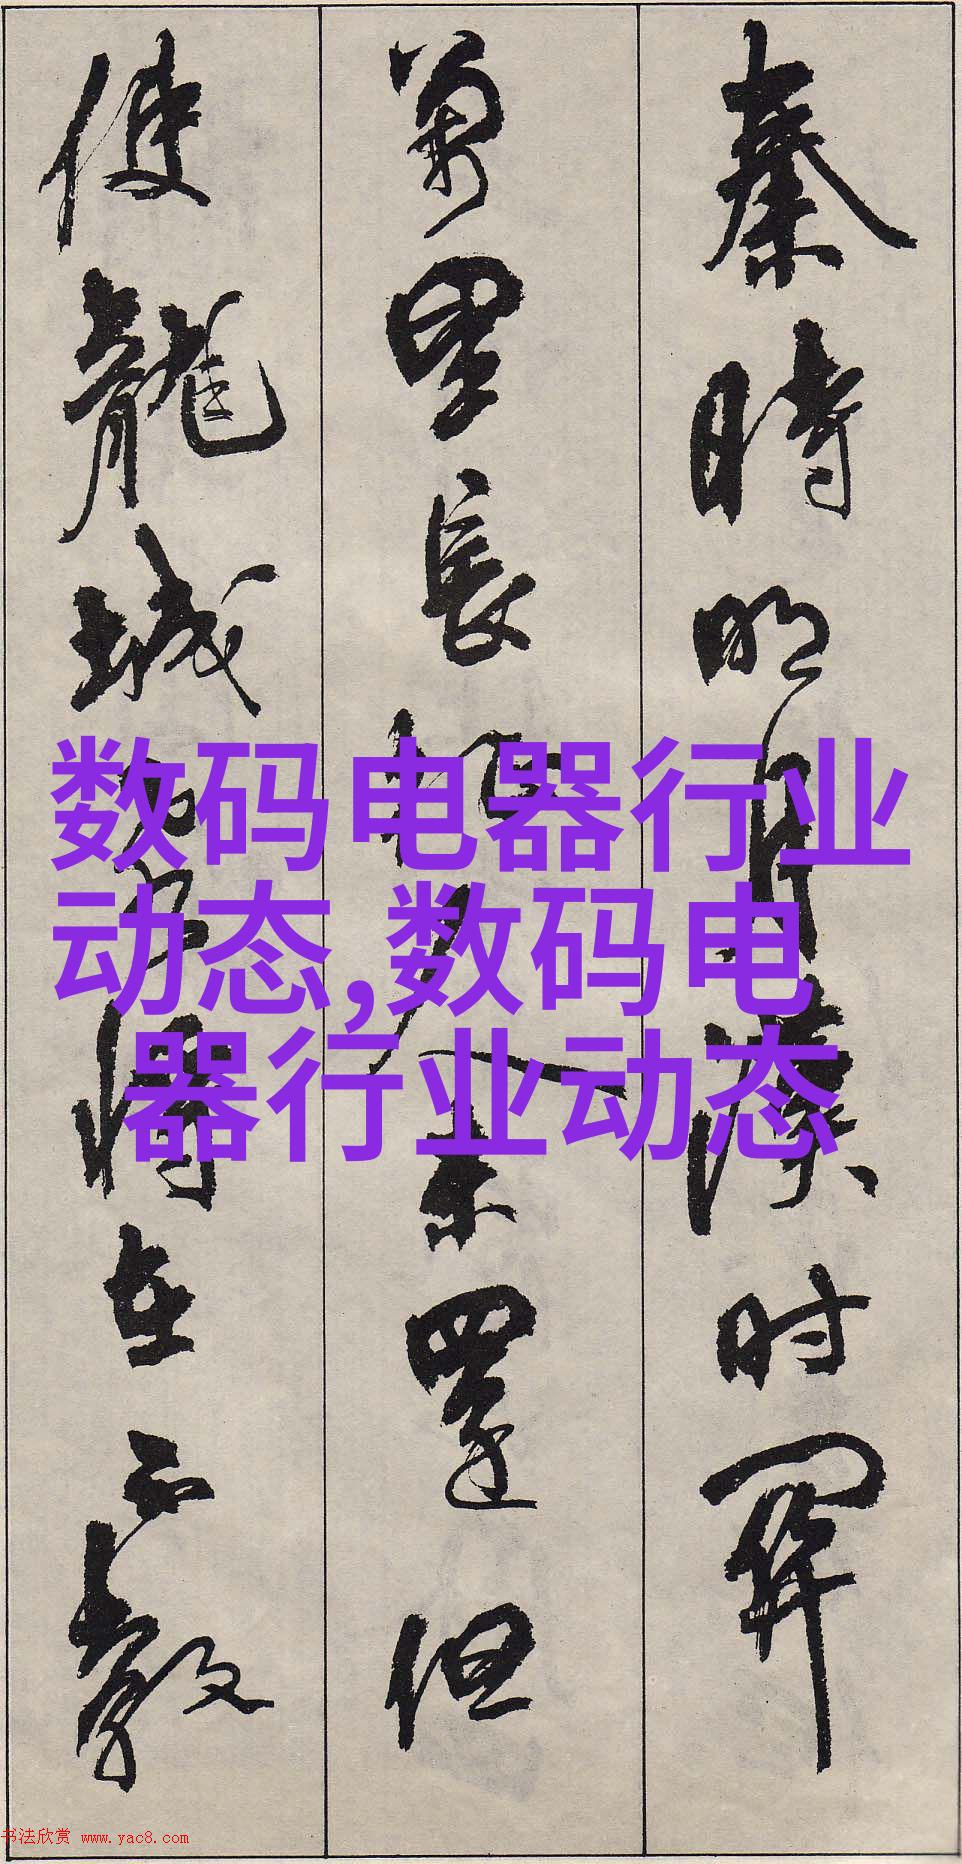 秦時明月漢时関
萬里長征人未還但
使龍城飛将在不教
数码电器行业
动态,数码电
器行业动态
书法欣赏 www.yac8.com